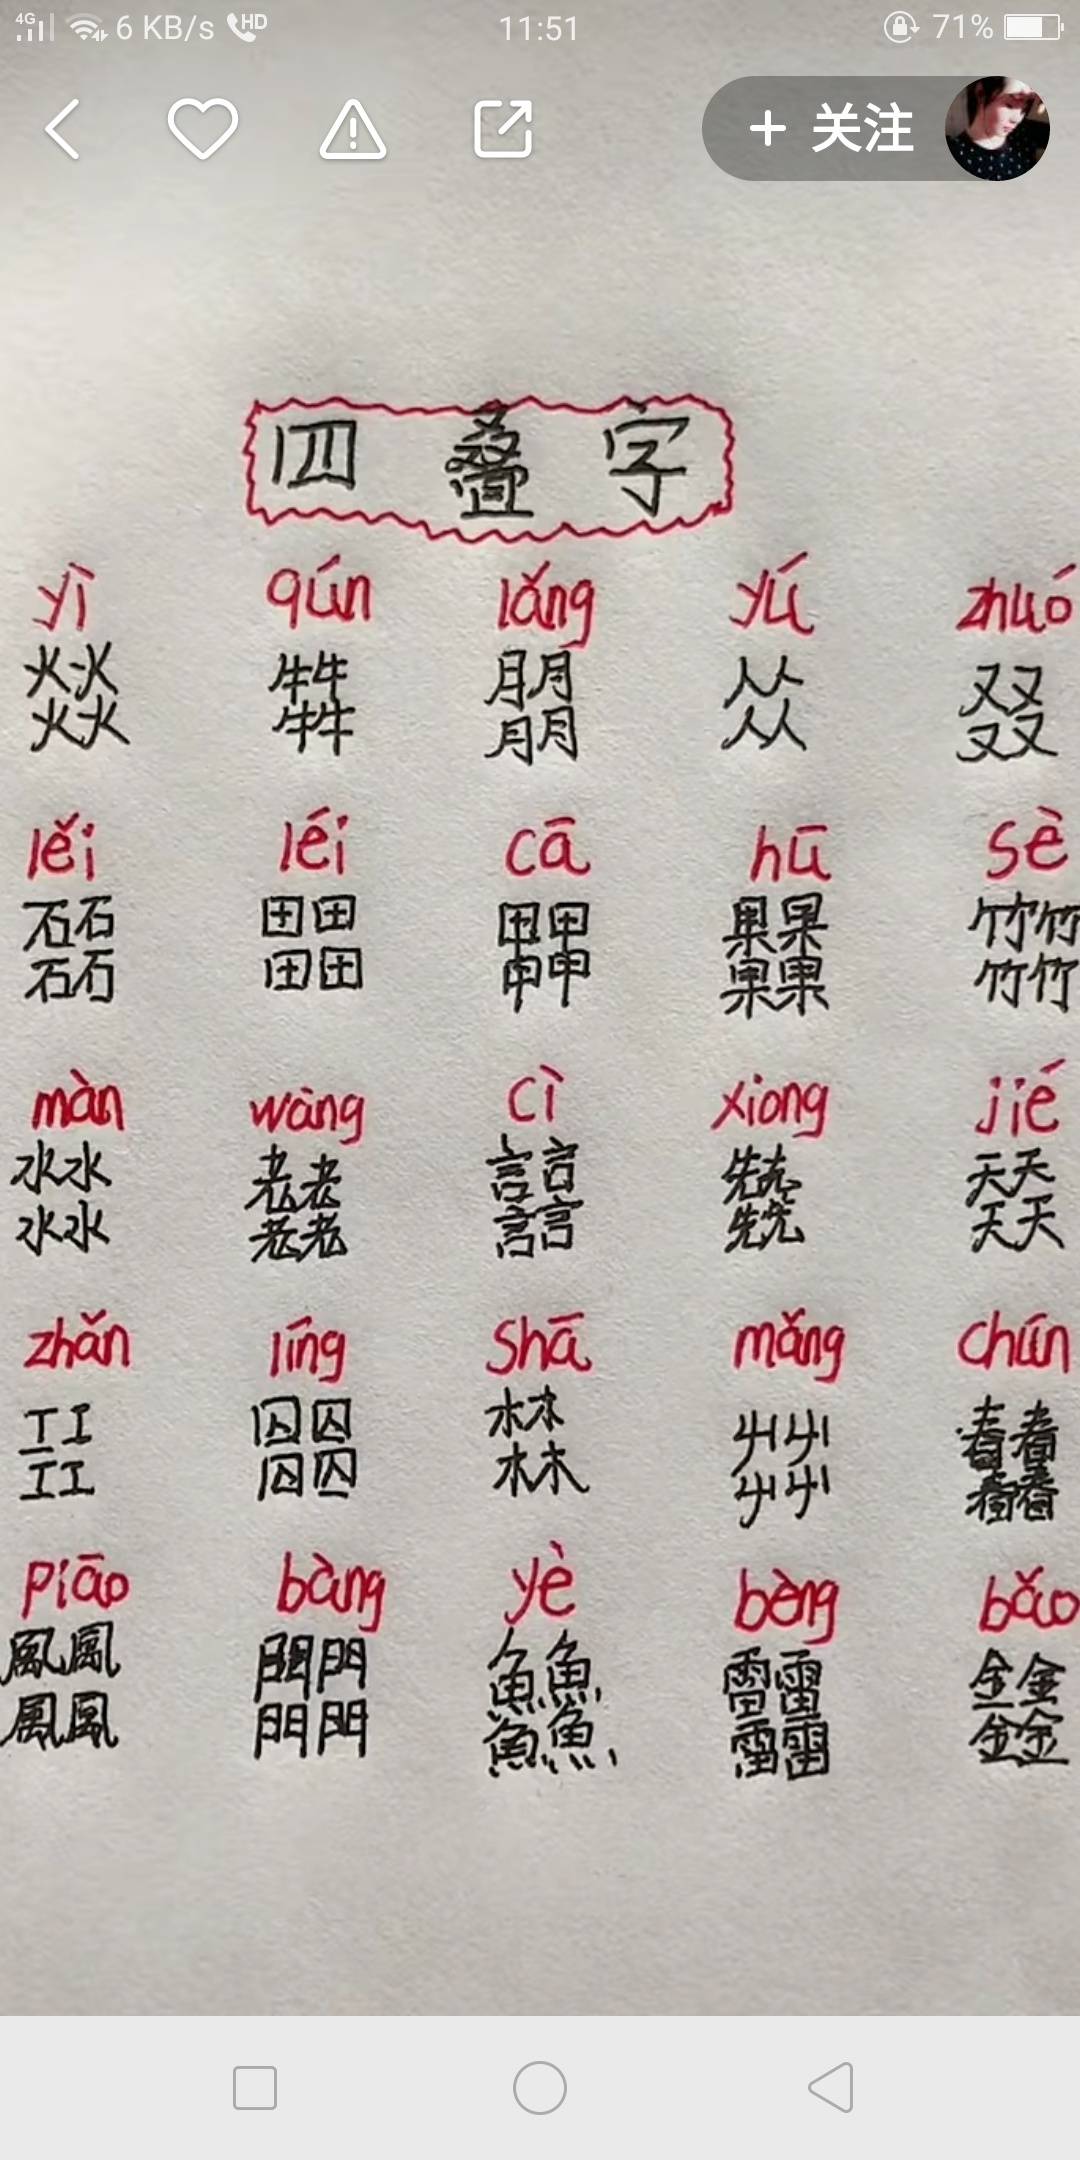 4G 6 KB/s HD 11:51 71%
+ 关注
四叠字
yì qún lǎng yú zhuó
火火 牛牛 月月 人人 又又
火火 牛牛 月月 人人 又又
lěi léi cā hū sè
石石 田田 甲甲 果果 竹竹
石石 田田 甲甲 果果 竹竹
màn wàng cì xiong jié
水水 老老 言言 先先 天天
水水 老老 言言 先先 天天
zhǎn líng shā mǎng chún
工工 囚囚 木木 屮屮 春春
工工 囚囚 木木 屮屮 春春
piāo bàng yè bèng bǎo
風風 門門 魚魚 雷雷 金金
風風 門門 魚魚 雷雷 金金